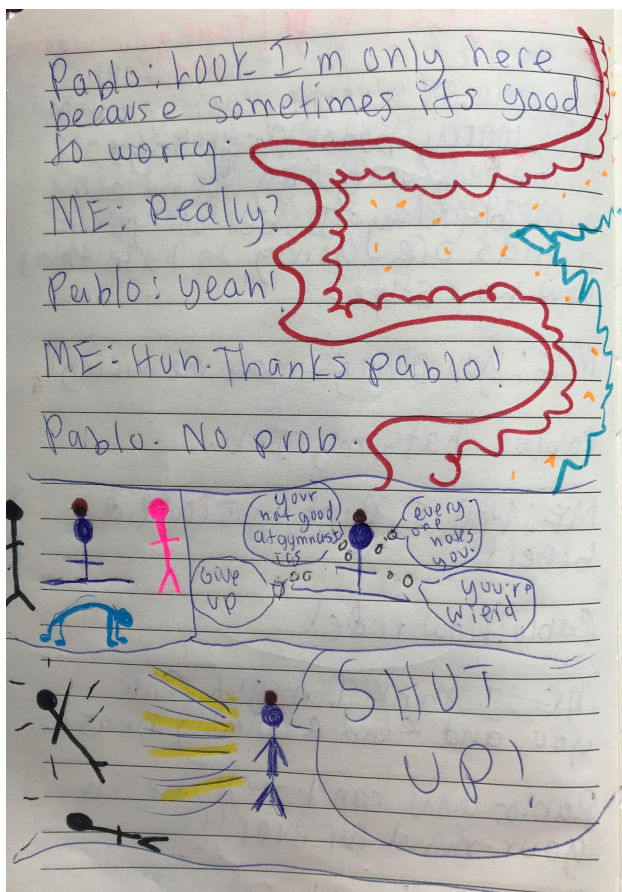 Pablo: Look I'm only here
because sometimes its good
to worry.
ME: Really?
Pablo: yeah!
ME: Huh. Thanks pablo!
Pablo. No prob.
your
not good
at gymnast
ics
every
one
hates
you.
Give
up
you're
wierd
SHUT
UP!